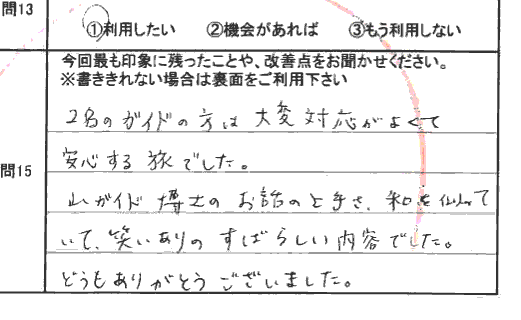 問13
①利用したい ②機会があれば ③もう利用しない
今回最も印象に残ったことや、改善点をお聞かせください。
※書ききれない場合は裏面をご利用下さい
問15
2名のガイドの方は大変対応がよくて
安心する旅でした。
山ガイド博士のお話のとき、
いて、笑いありのすばらしい内容でした。
どうもありがとうございました。